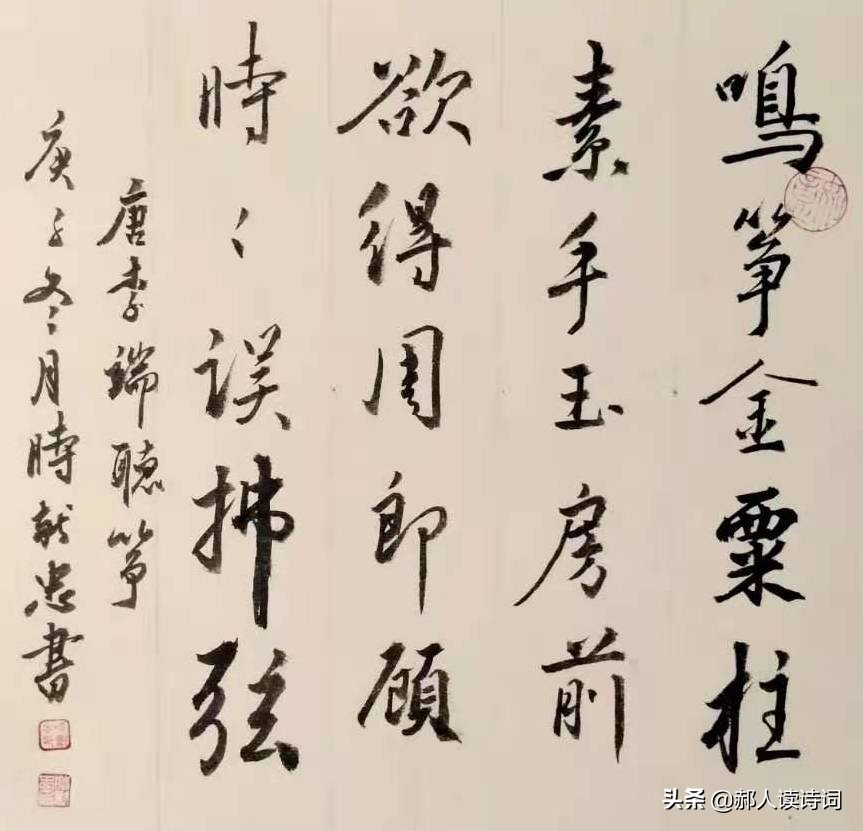 鳴筝金粟柱
素手玉房前
欲得周郎顾
時〻误拂弦
唐李端聽筝
庚子冬月時龙忠書
头条 @郝人读诗词